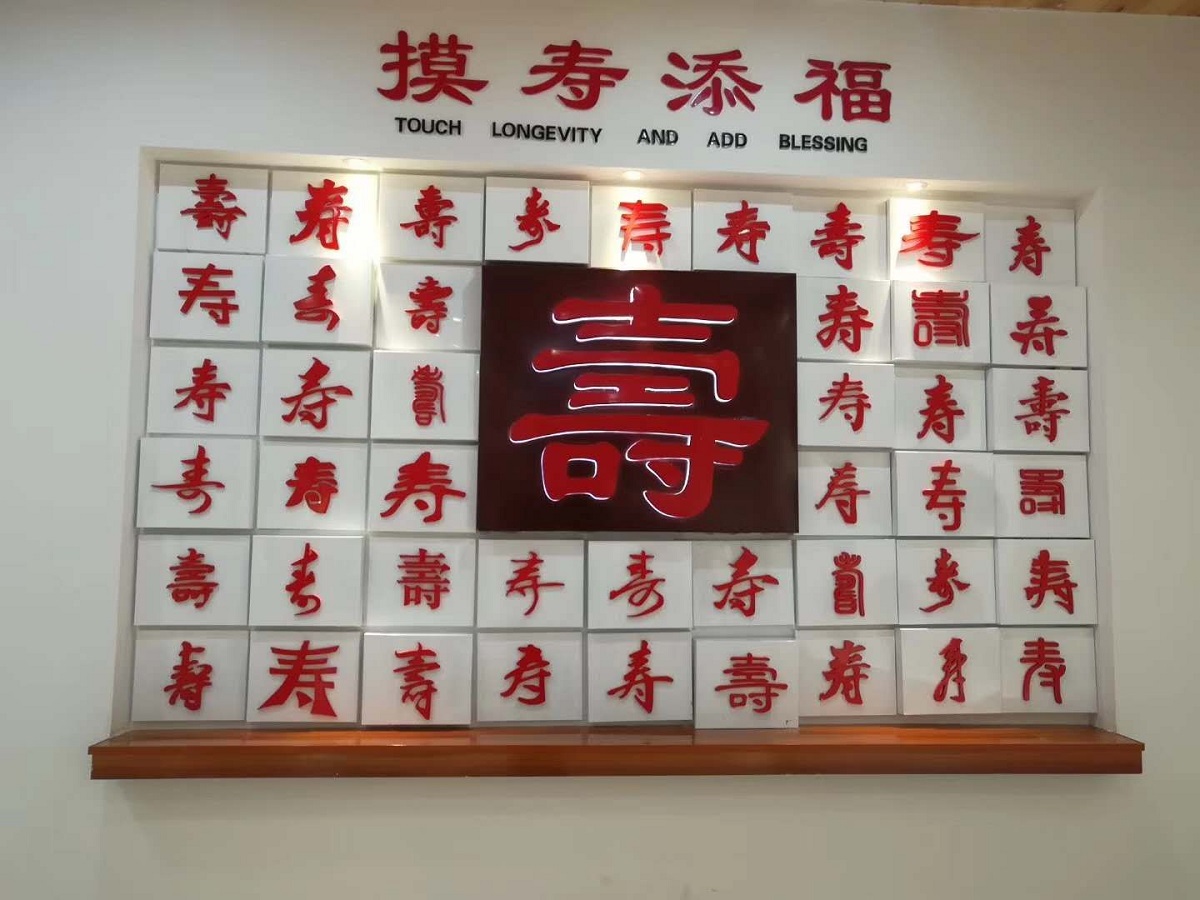 摸寿添福
TOUCH LONGEVITY AND ADD BLESSING
壽 寿 壽 寿 寿 寿 壽 寿 寿
寿 寿 壽 寿 壽 寿
寿 寿 壽 壽 寿 寿 壽
寿 寿 寿 寿 寿 壽
壽 寿 壽 寿 寿 寿 壽 寿 寿
壽 寿 壽 寿 寿 壽 寿 寿 寿